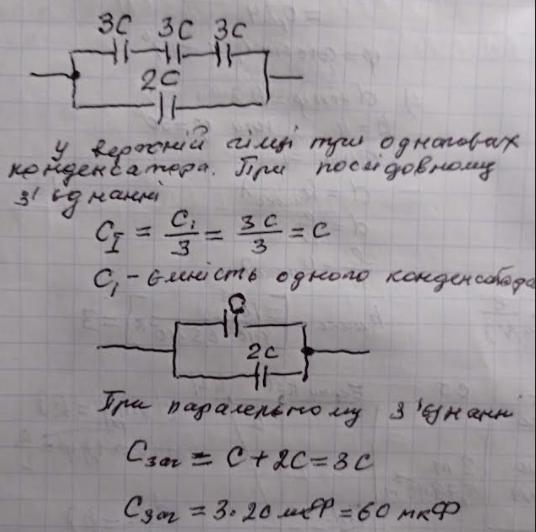 3C 3C 3C
2C
У верхній гілці три однакових
конденсатора. При послідовному
з'єднанні
C_I = C₁/3 = 3C/3 = C
C₁ - ємність одного конденсатора
C
2C
При паралельному з'єднанні
Cзаг = C + 2C = 3C
Cзаг = 3·20 мкФ = 60 мкФ